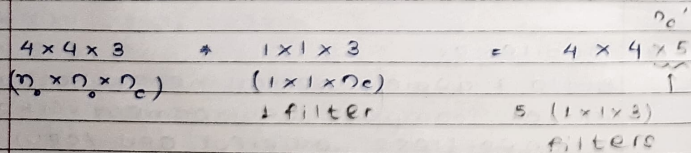 n_c'
4 × 4 × 3 * 1 × 1 × 3 = 4 × 4 × 5
(n_o × n_o × n_c) (1 × 1 × n_c) ↑
1 filter 5 (1 × 1 × 3)
filters